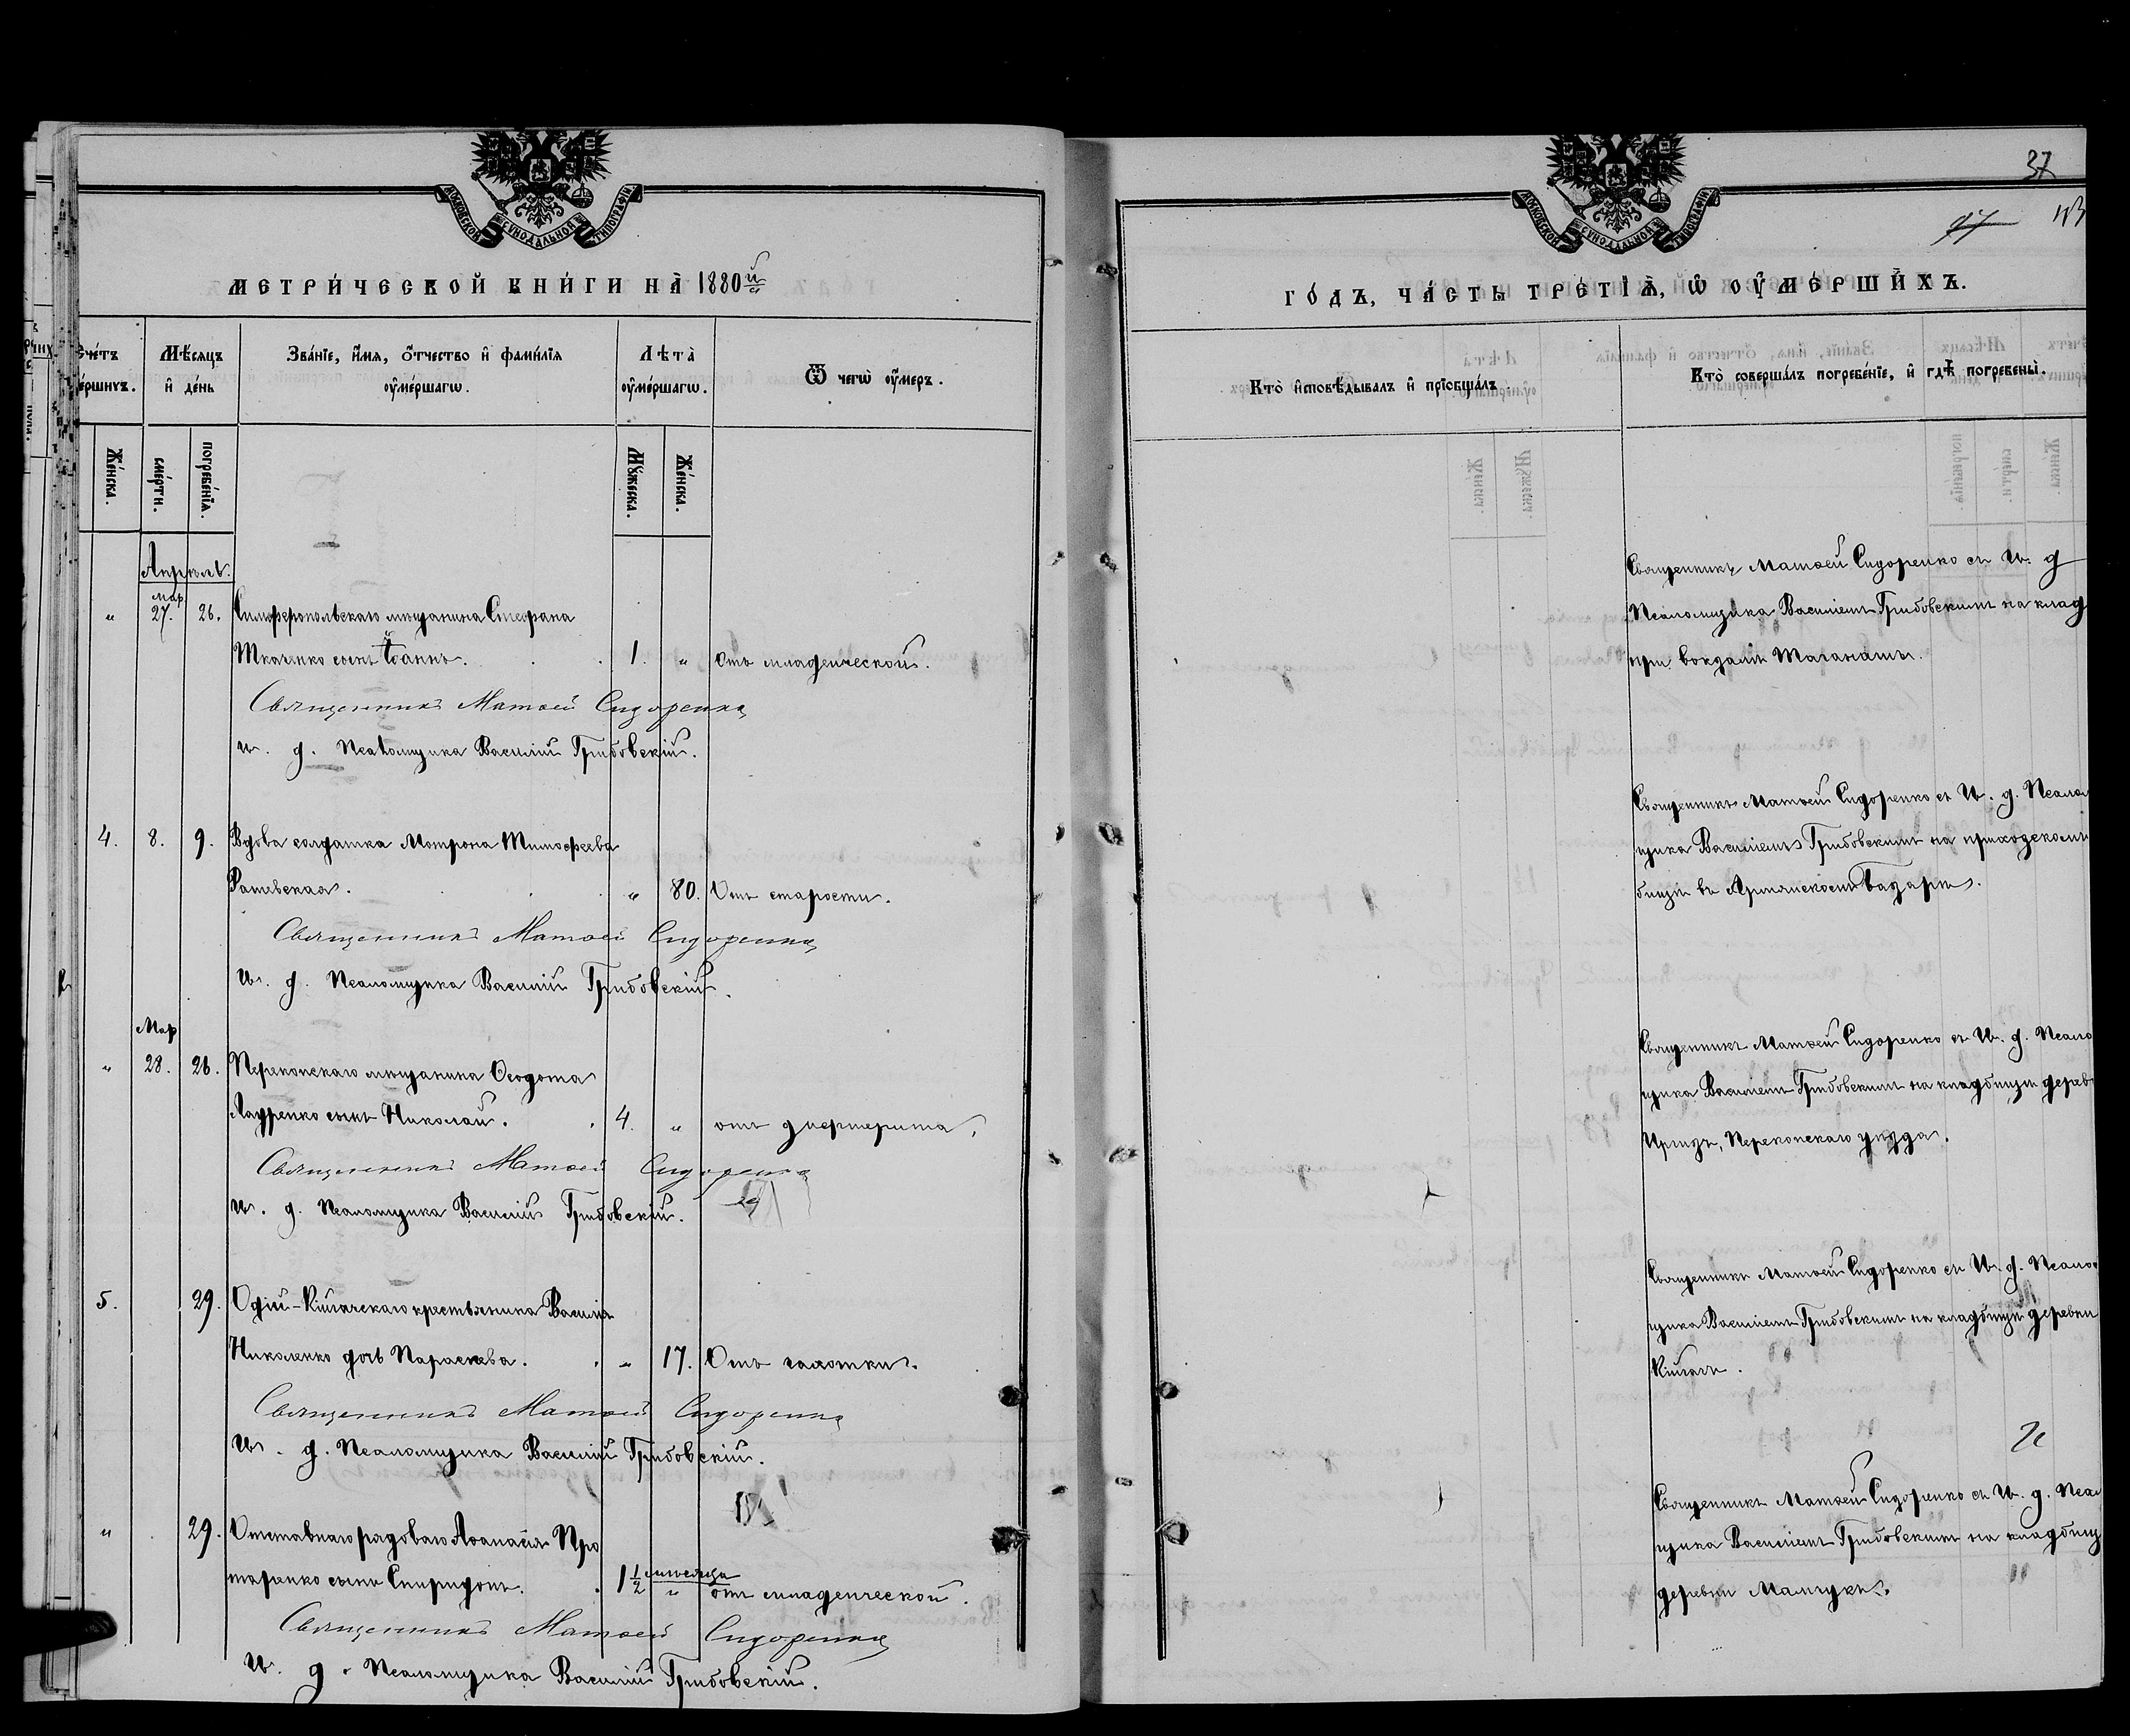 МОСКОВСКОЙ СѴНОДАЛЬНОЙ ТИПОГРАФІИ
МЕТРИ́ЧЕСКОЙ КНИ́ГИ НА̀ 1880й
Счетъ
ершихъ.
Мѣсяцъ и день
Зва́нїе, и҆́мѧ, ѻ҆́тчество и҆ фами́лїѧ оу҆ме́ршагѡ.
Лѣта̀ оу҆ме́ршагѡ.
Ѿ чегѡ̀ оу҆́меръ.
Же́нска.
сме́рти.
погребе́нїѧ.
Мꙋ́жеска.
Же́нска.
Апрѣль.
мар
„ 27. 26. Симферопольскаго мѣщанина Стефана
Ткаченко сынъ Іоаннъ. 1. „ Отъ младенческой.
Священникъ Матѳей Сидоренко
И. д. Псаломщика Василій Грибовскій.
4. 8. 9. Вдова солдатка Мотрона Тимофеева
80. Отъ старости.
Священникъ Матѳей Сидоренко
И. д. Псаломщика Василій Грибовскій.
Мар
„ 28. 26. Перекопскаго мѣщанина Ѳеодота
Лауренко сынъ Николай. 4. „ отъ дифтерита.
Священникъ Матѳей Сидоренко
И. д. Псаломщика Василій Грибовскій.
5. 29. крестьянина Василія
Николенко дочь Параскева. „ 17. Отъ чахотки.
Священникъ Матѳей Сидоренко
И. д. Псаломщика Василій Грибовскій.
„ 29. Отставнаго рядоваго Аѳанасія Про
таренко сынъ Спиридонъ. 1 1/2 мѣсяца „ отъ младенческой.
Священникъ Матѳей Сидоренко
И. д. Псаломщика Василій Грибовскій.
37
МОСКОВСКОЙ СѴНОДАЛЬНОЙ ТИПОГРАФІИ
ГО́ДЪ, ЧА́СТЬ ТРЕ́ТЇѦ, Ѡ҆ ОУ҆МЕ́РШИХЪ.
Кто̀ и҆сповѣ́дывалъ и҆ прїобща́лъ
Кто̀ соверша́лъ погребе́нїе, и҆ гдѣ̀ погребены̀.
Священникъ Матѳей Сидоренко съ И. д
Псаломщика Василіемъ Грибовскимъ на клад
при вокзалѣ Таганашъ.
Священникъ Матѳей Сидоренко съ И. д. Псалом
щика Василіемъ Грибовскимъ на приходскомъ
бищѣ въ Армянскомъ Базарѣ.
Священникъ Матѳей Сидоренко съ И. д. Псало
щика Василіемъ Грибовскимъ на кладбищѣ дерев
Перекопскаго уѣзда.
Священникъ Матѳей Сидоренко съ И. д. Псало
щика Василіемъ Грибовскимъ на кладбищѣ деревни
Священникъ Матѳей Сидоренко съ И. д. Псал
щика Василіемъ Грибовскимъ на кладбищ
деревни Мамчукъ.